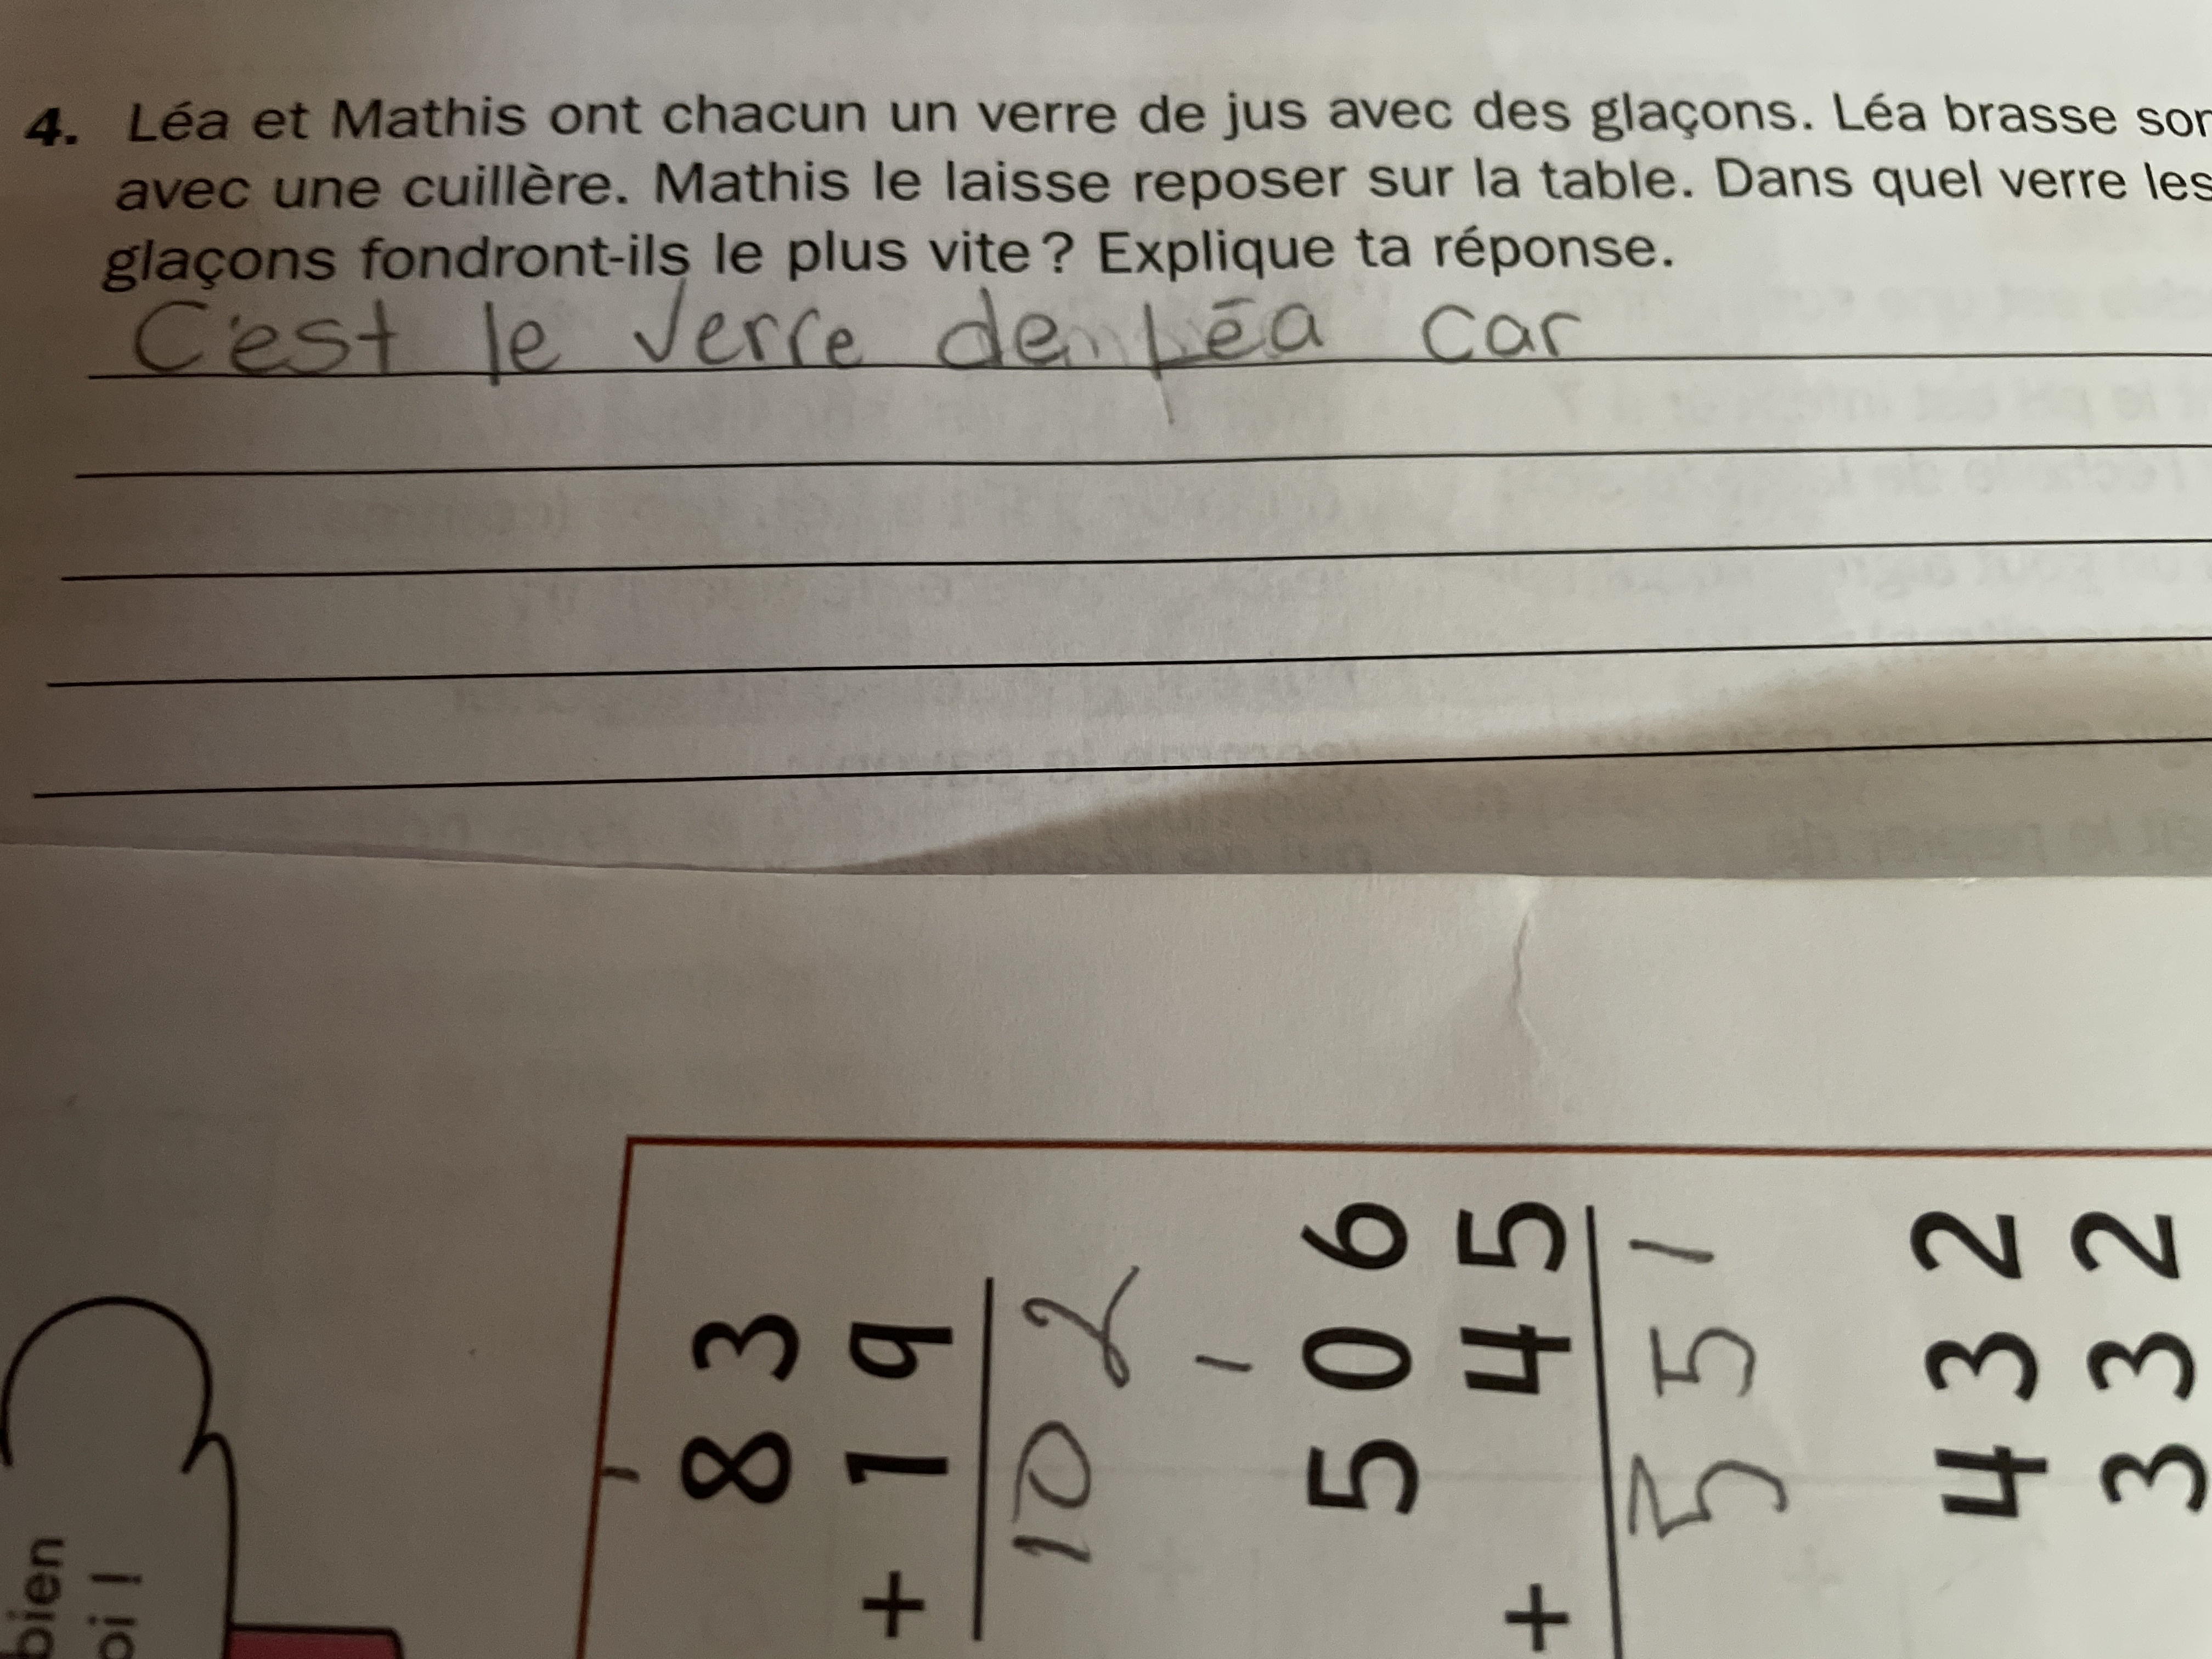 4. Léa et Mathis ont chacun un verre de jus avec des glaçons. Léa brasse son
avec une cuillère. Mathis le laisse reposer sur la table. Dans quel verre les
glaçons fondront-ils le plus vite ? Explique ta réponse.
C'est le verre de Léa car
bien
oi !
1
83
+ 19
102
1
506
+ 45
551
432
332